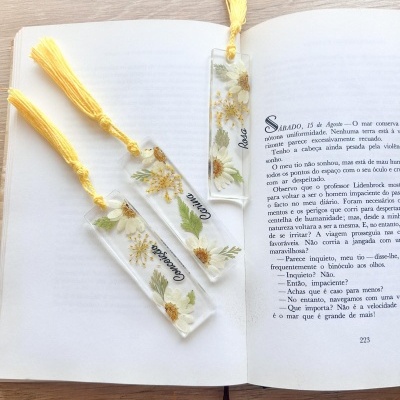 Conceição
Corina
Rosa
SÁBADO, 15 de Agosto — O mar conserva
nótona uniformidade. Nenhuma terra está à
rizonte parece excessivamente recuado.
Tenho a cabeça ainda pesada pela violên
sonho.
O meu tio não sonhou, mas está de mau hum
todos os pontos do espaço com o seu óculo e cr
com ar despeitado.
Observo que o professor Lidenbrock mostra
para voltar a ser o homem impaciente do passa
o facto no meu diário. Foram necessários o
mentos e os perigos que corri para despertar
centelha de humanidade; mas, desde a minha
natureza voltara a ser a mesma. E, no entanto,
de se irritar? A viagem prosseguia nas
favoráveis. Não corria a jangada com uma
maravilhosa?
— Parece inquieto, meu tio — disse-lhe,
frequentemente o binóculo aos olhos.
— Inquieto? Não.
— Então, impaciente?
— Achas que é caso para menos?
— No entanto, navegamos com uma v
— Que importa? Não é a velocidade
é o mar que é grande de mais!
223